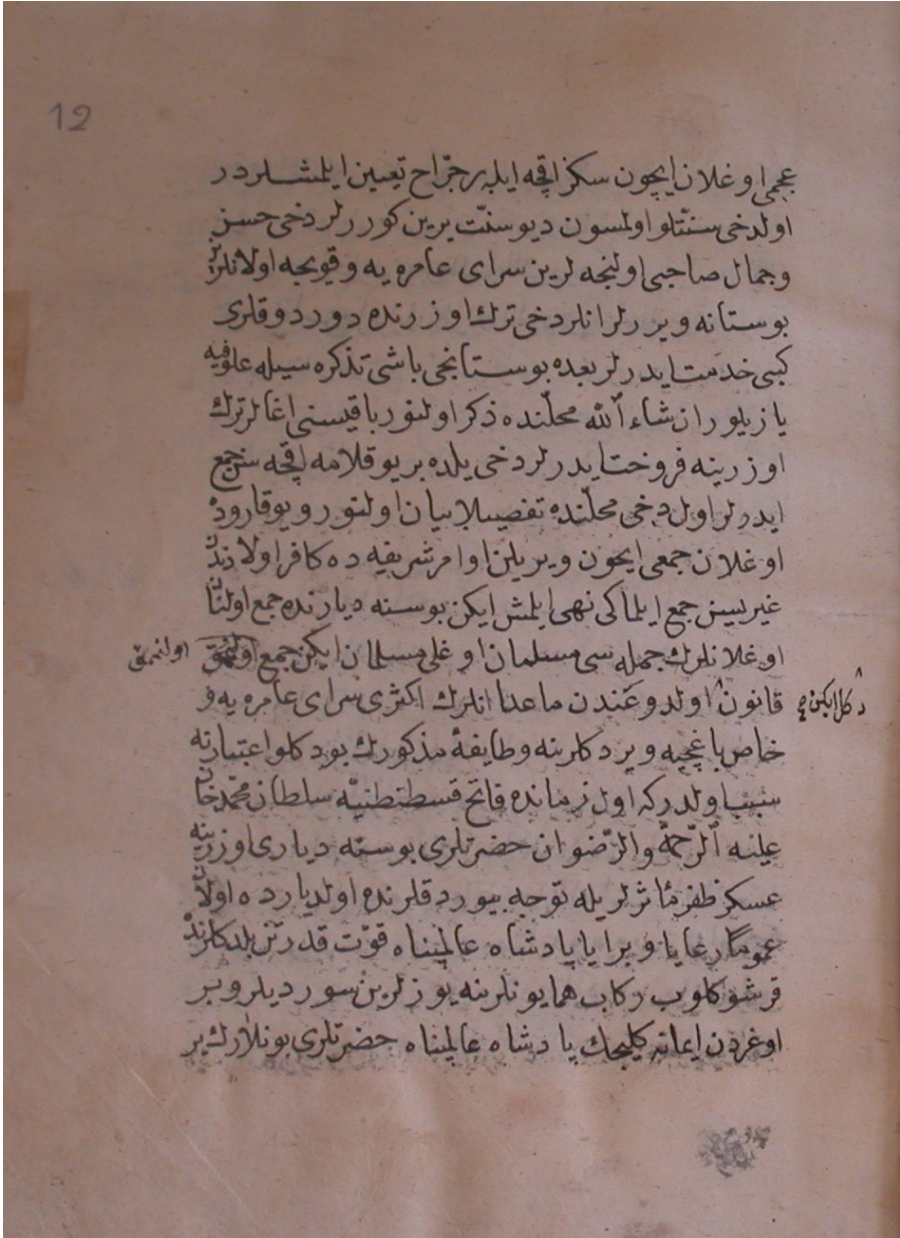 12
عجمى اوغلان ايچون سكز اقچه ايله بر جرّاح تعيين ايلمشلردر
اولدخى سنّتلو اولمسون ديو سنّت يرين كوررلر دخى حسن
وجمال صاحبى اولنجه لرين سراى عامره يه وقويجه اولانلرن
بوستانه ويررلر انلر دخى ترك اوزرنده دوردوقلرى
كبى خدمت ايدرلر بعده بوستانجى باشى تذكره سيله علوفيه
يازيلور ان شاء الله محلّنده ذكر اولنور باقيسنى اغالر ترك
اوزرينه فروخت ايدرلر دخى يلده بر يوقلامه اقچه سن جمع
ايدرلر اول دخى محلّنده تفصيلا بيان اولنور و يوقاروده
اوغلان جمعى ايچون ويريلن اوامر شريفه ده كافر اولادندن
غيريسين جمع ايلماكى نهى ايلمش ايكن بوسنه ديارنده جمع اولنان
اوغلانلرك جمله سى مسلمان اوغلى مسلمان ايكن جمع اولنمق اولنمق
قانون اولدوغندن ماعدا انلرك اكثرى سراى عامره يه و دكل ايكن
خاص باغچيه ويردكلرينه وطايفهٔ مذكورك بو دكلو اعتبارنه
سبب اولدر كه اول زمانده فاتح قسطنطنيّه سلطان محمّد خان
عليه الرّحمة والرّضوان حضرتلرى بوسنه ديارى اوزرينه
عسكر ظفر مآثرلريله توجه بيوردقلرنده اول ديارده اولان
عموماً رعايا وبرايا پادشاه عالمپناه قوّت قدرتن بلدكلرندن
قرشو كلوب ركاب همايونلرينه يوزلرين سورديلر و بر
اوغردن ايمانه كليجك پادشاه عالمپناه حضرتلرى بونلارك بر